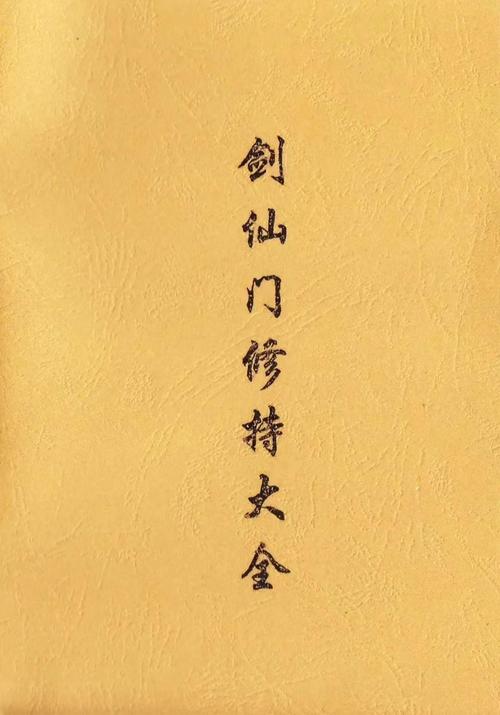 剑仙门修持大全